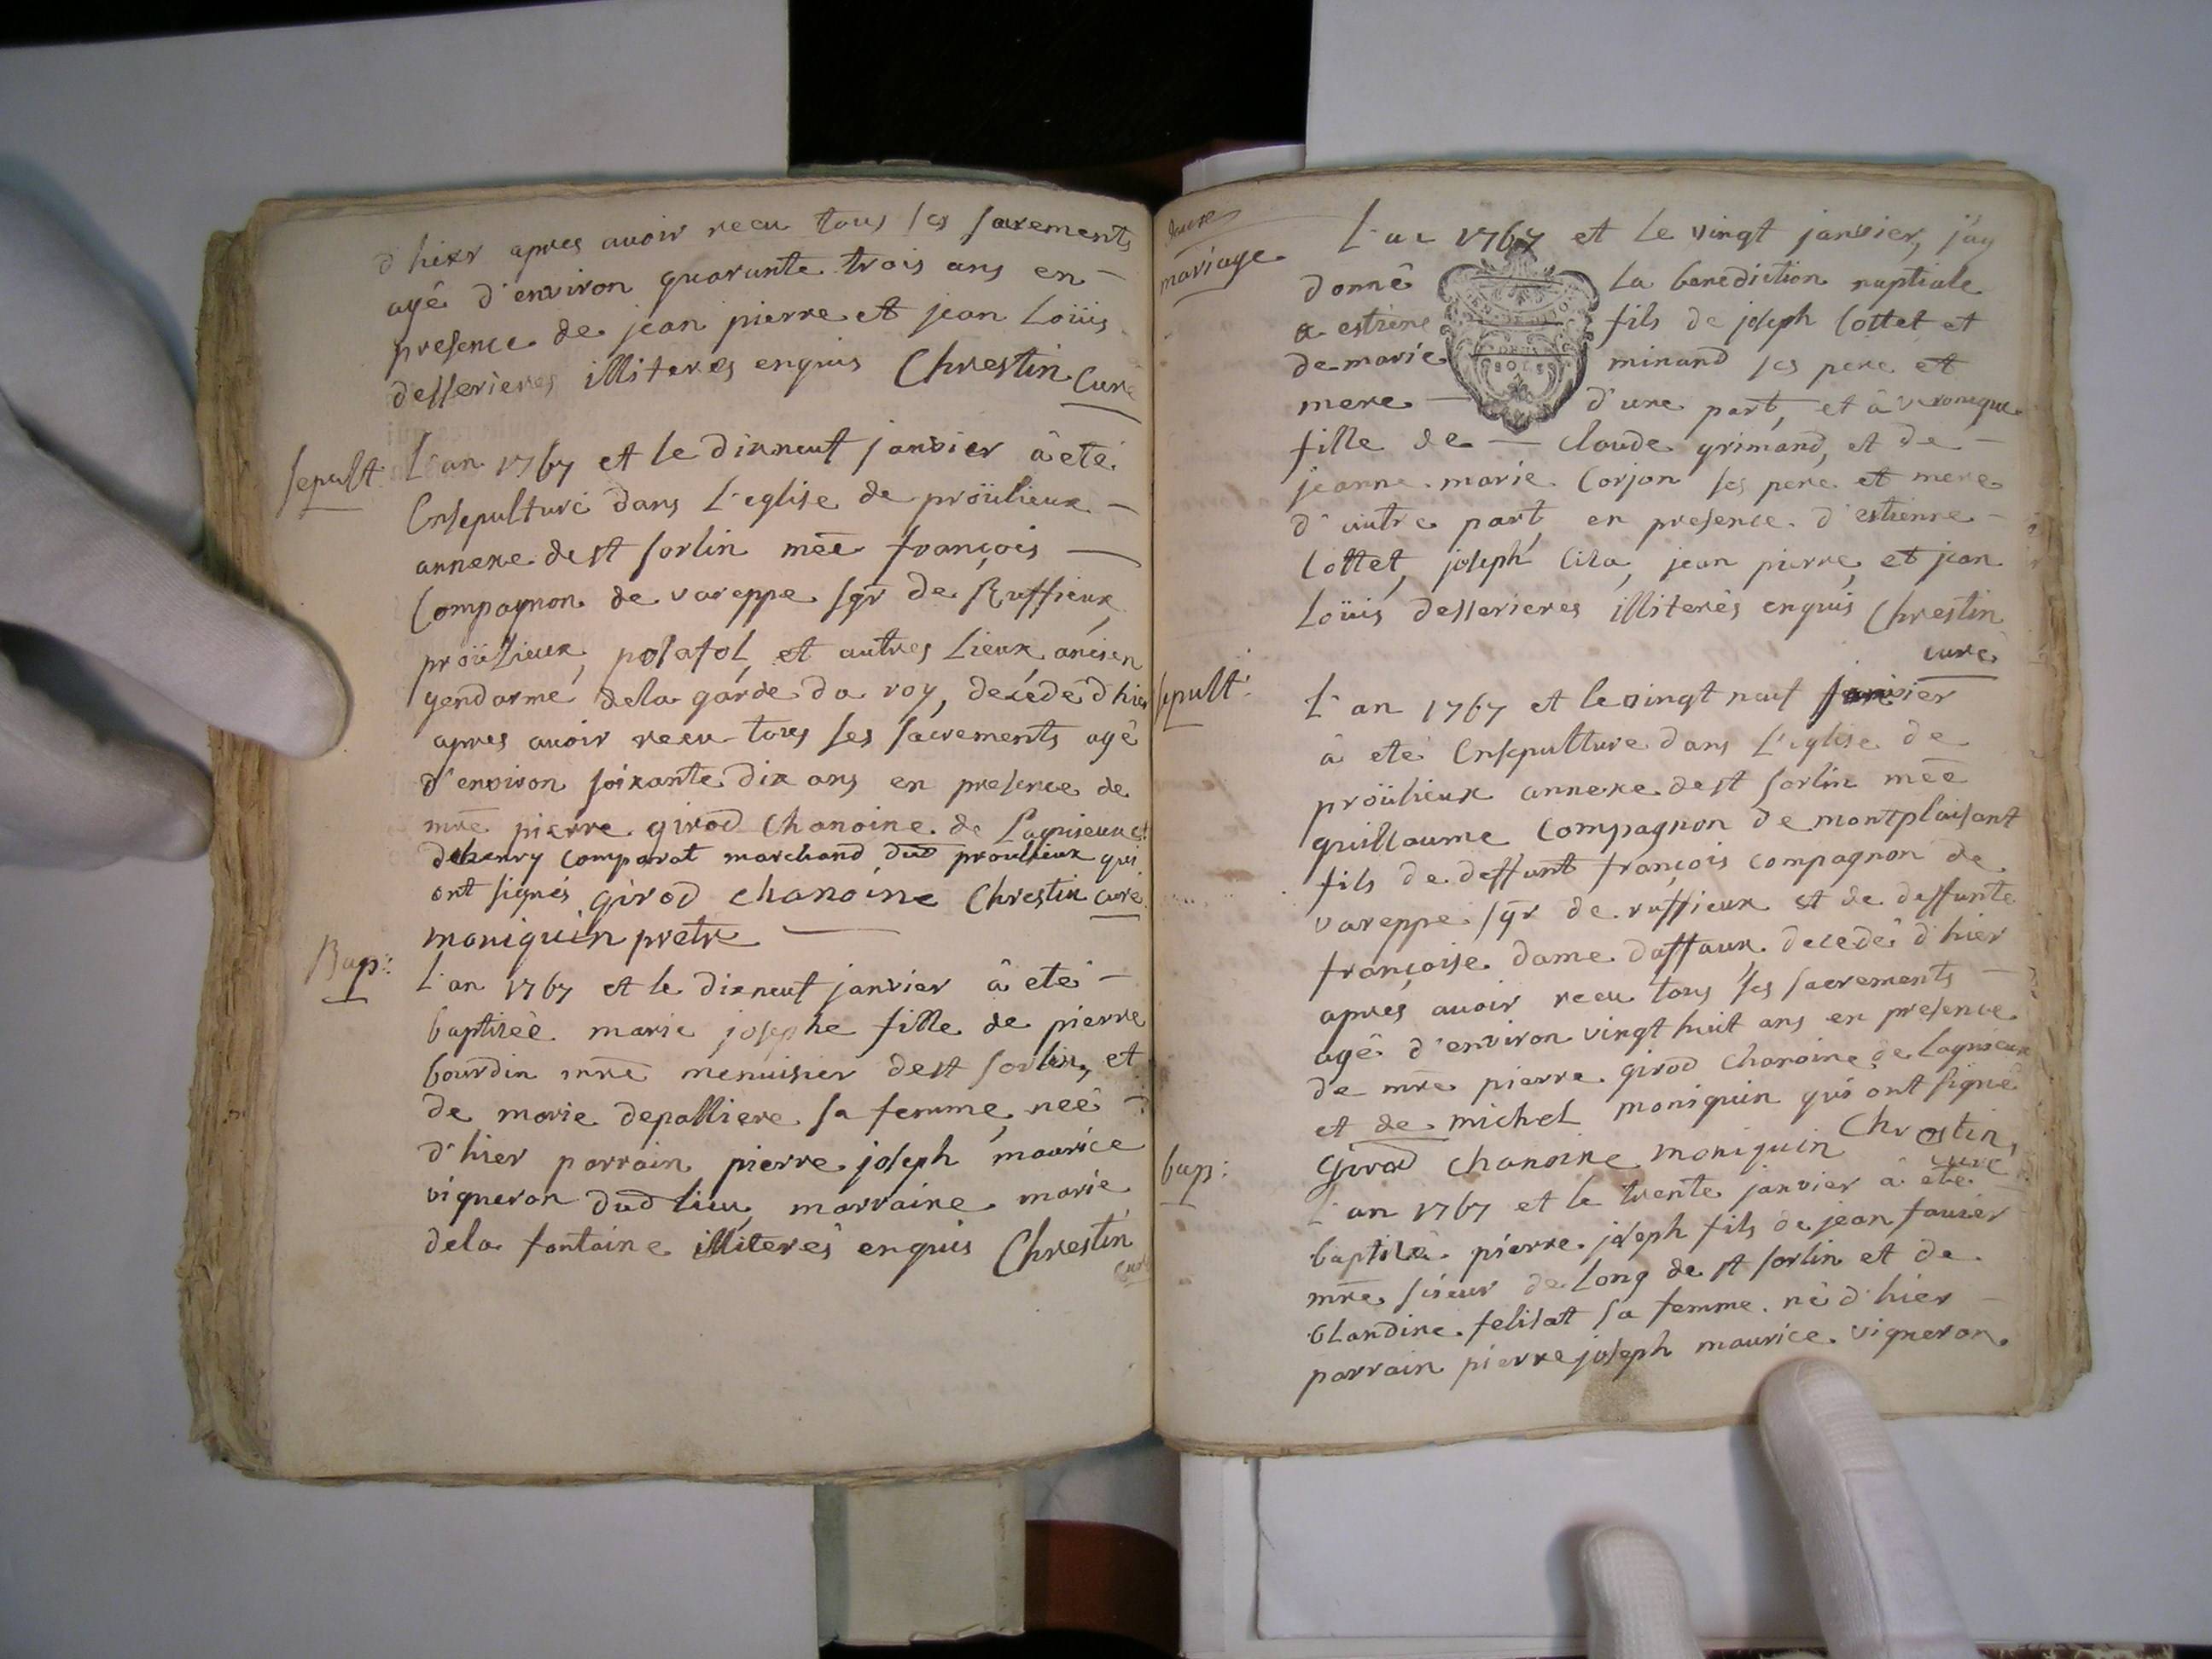 d'hier apres avoir recu tous ses sacrements
agé d'environ quarante trois ans en
presence de jean pierre et jean Loüis
desserieres illiterés enquis Chrestin Curé
sepult
L'an 1767 et le dixneuf janvier â eté
Ensepulturé dans L'eglise de proüilieux
annexe de st sorlin mëe françois
Compagnon de vareppe sgr de Ruffieux
proüilieux, polafol, et autres Lieux, ancien
gendarme dela garde du roy, decédé d'hier
apres avoir recu tous ses sacrements agé
d'environ soixante dix ans en presence de
mre pierre girod chanoine de Lagnieux et
de henry comparat marchand dud proullieux qui
ont signés girod chanoine Chrestin curé
moniquin pretre
Bap:
L'an 1767 et le dixneuf janvier â eté
baptisée marie josephe fille de pierre
bourdin mre menuisier de st sorlin, et
de marie depalliere sa femme, neê
d'hier parrain pierre joseph maurice
vigneron dud lieu, marraine marie
dela fontaine illiterés enquis Chrestin
Curé
mariage
L'an 1767 et le vingt janvier, j'ay
donné la benediction nuptiale
a estiene fils de joseph Cottet et
de marie minand ses pere et
mere d'une part, et â veronique
fille de claude grimand, et de
jeanne marie Corjon ses pere et mere
d'autre part, en presence d'estienne
Cottet, joseph Cila, jean pierre, et jean
Loüis desserieres illiterés enquis Chrestin
curé
sepult:
L'an 1767 et le vingt neuf janvier
â eté Ensepulturé dans L'eglise de
proüilieux annexe de st sorlin mëe
guillaume Compagnon de montplaisant
fils de deffunt françois compagnon de
vareppe sgr de ruffieux et de deffunte
françoise dame daffaux decedé d'hier
apres avoir recu tous ses sacrements
agé d'environ vingt huit ans en presence
de mre pierre girod chanoine de Lagnieux
et de michel moniquin qui ont signé
Girod chanoine moniquin Chrestin
curé
bap:
L'an 1767 et le trente janvier â eté
baptisé pierre joseph fils de jean favier
mre sieur de Long de st sorlin et de
blandine felisat sa femme né d'hier
parrain pierre joseph maurice vigneron